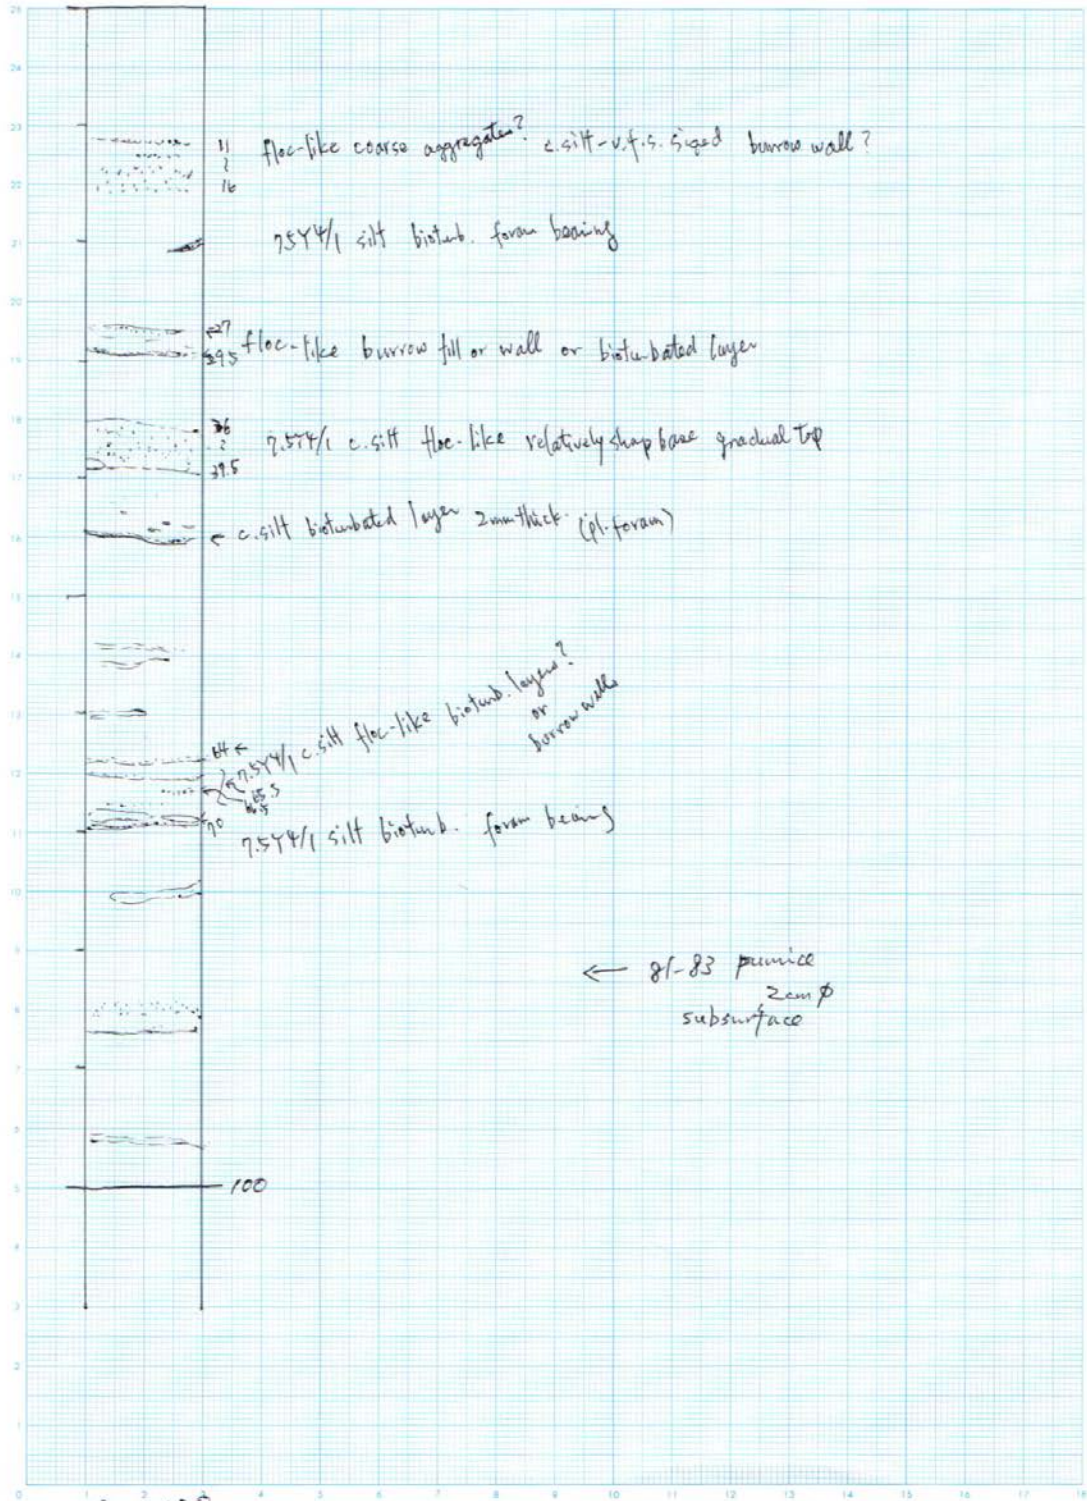 11 floc-like coarse aggregates? c.silt-v.f.s. sized burrow wall?
16
7.5Y4/1 silt bioturb. foram bearing
←27
←29.5 floc-like burrow fill or wall or bioturbated layer
36
7.5Y4/1 c.silt floc-like relatively shap base gradual top
39.5
← c.silt bioturbated layer 2mm thick. (pl. foram)
64 ←
7.5Y4/1 c.silt floc-like bioturb. layers?
or
burrow walls
65.5
70
7.5Y4/1 silt bioturb. foram bearing
← 81-83 pumice
2cm φ
subsurface
100
26
24
23
22
21
20
19
18
17
16
15
14
13
12
11
10
9
8
7
6
5
4
3
2
1
0 1 2 3 4 5 6 7 8 9 10 11 12 13 14 15 16 17 18